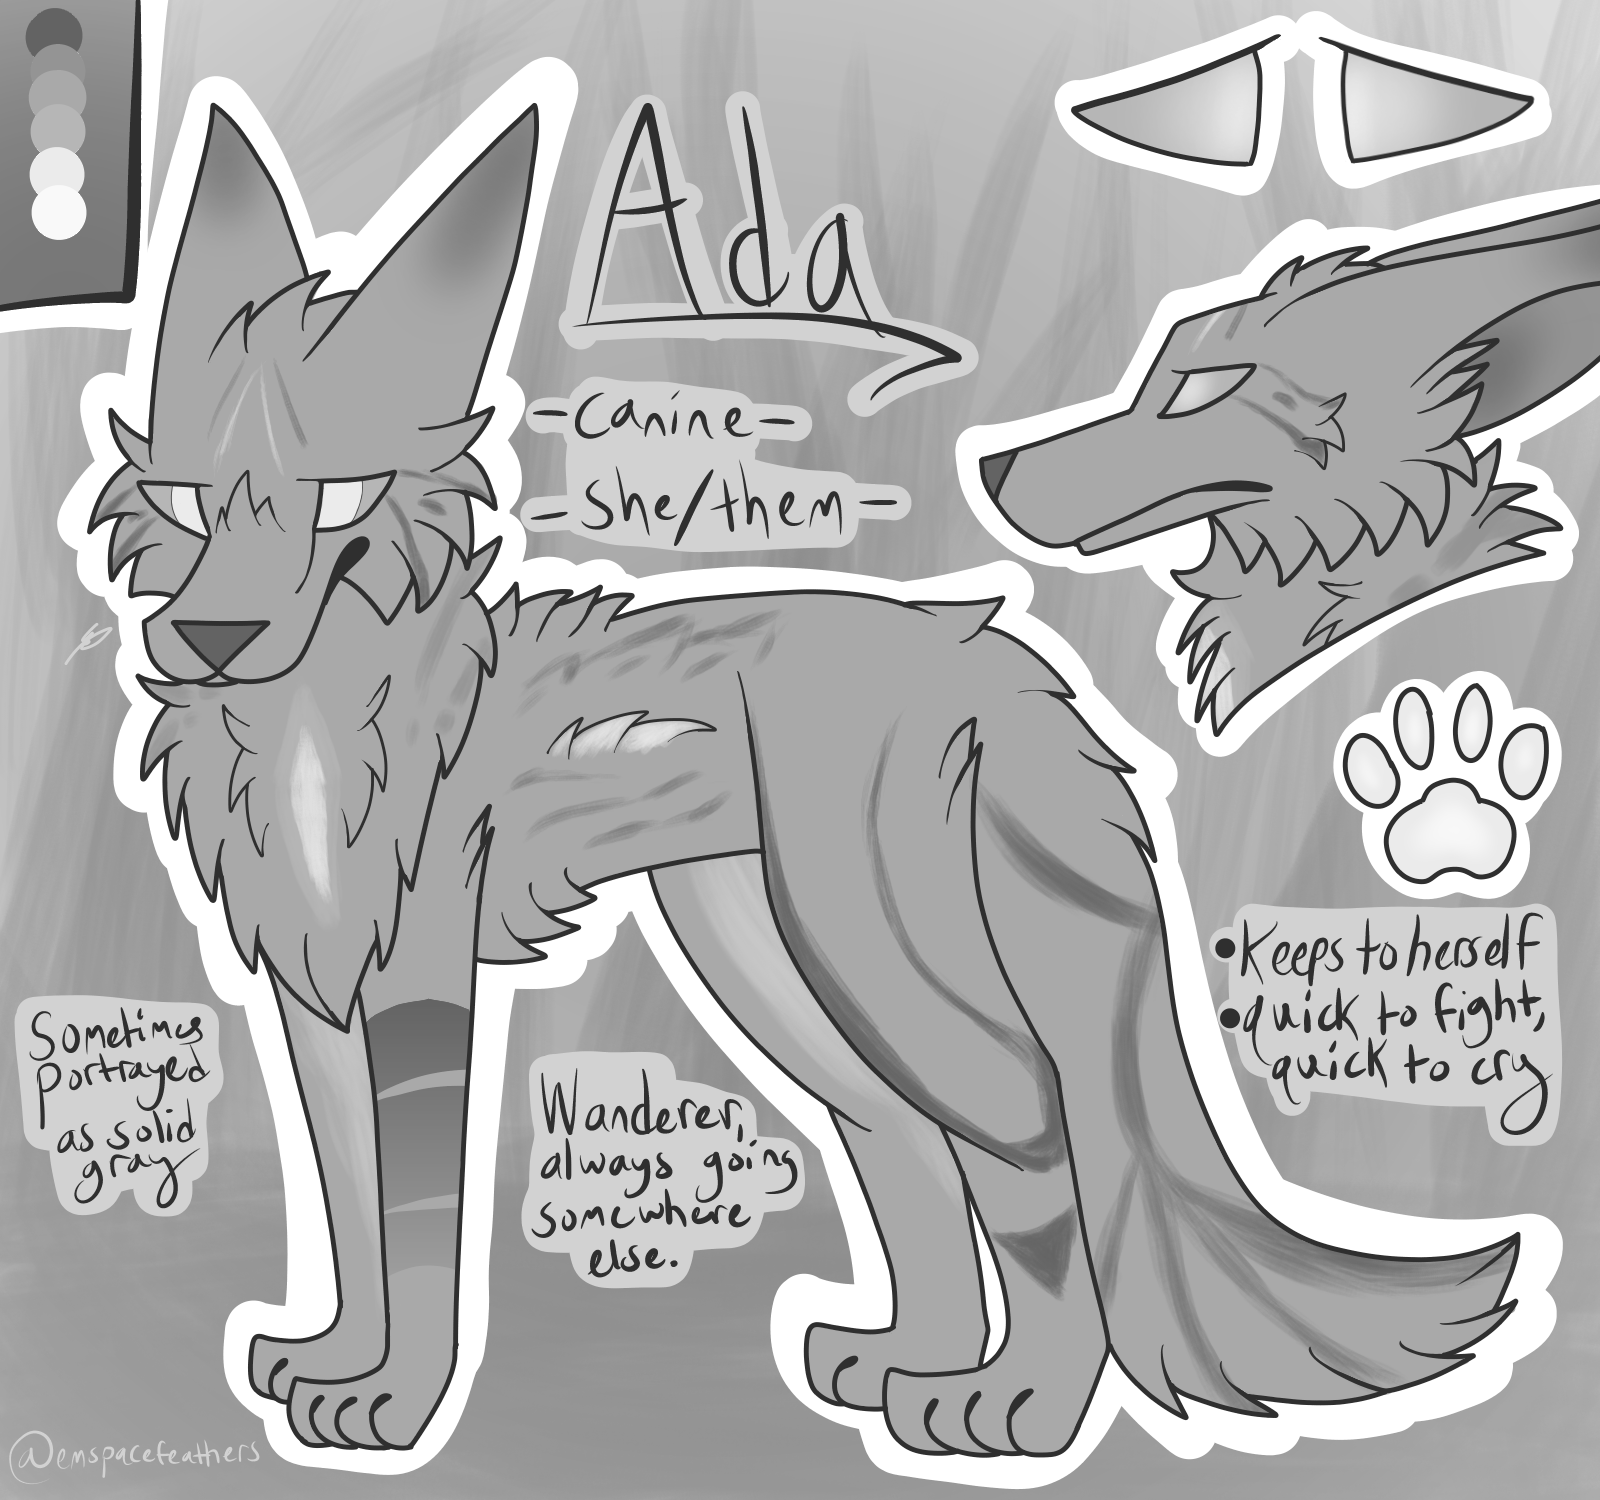 Ada
-Canine-
-She/them-
•Keeps to herself
•quick to fight,
quick to cry
Sometimes
portrayed
as solid
gray
Wanderer,
always going
somewhere
else.
@emspacefeathers